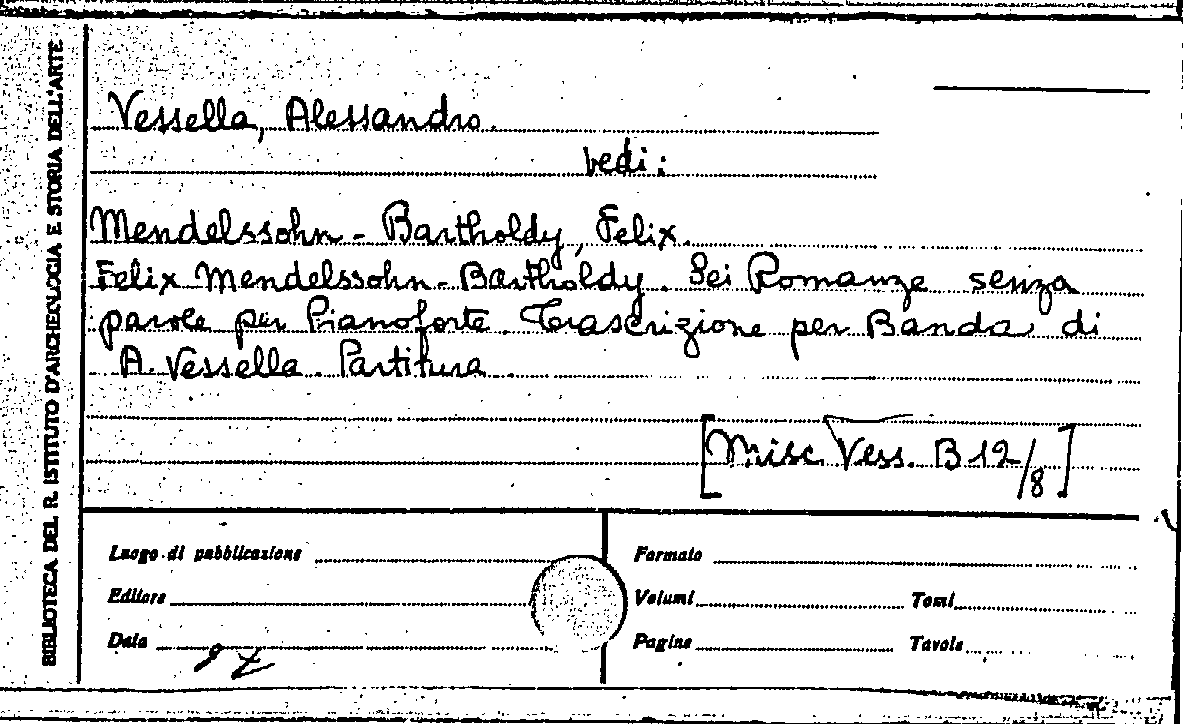 BIBLIOTECA DEL R. ISTITUTO D'ARCHEOLOGIA E STORIA DELL'ARTE
Vessella, Alessandro.
vedi:
Mendelssohn - Bartholdy, Felix.
Felix Mendelssohn - Bartholdy. Sei Romanze senza
parole per Pianoforte. Trascrizione per Banda di
A. Vessella. Partitura.
[Misc. Vess. B 12/8]
Luogo di pubblicazione
Formato
Editore
Volumi
Tomi
Data
Pagine
Tavole